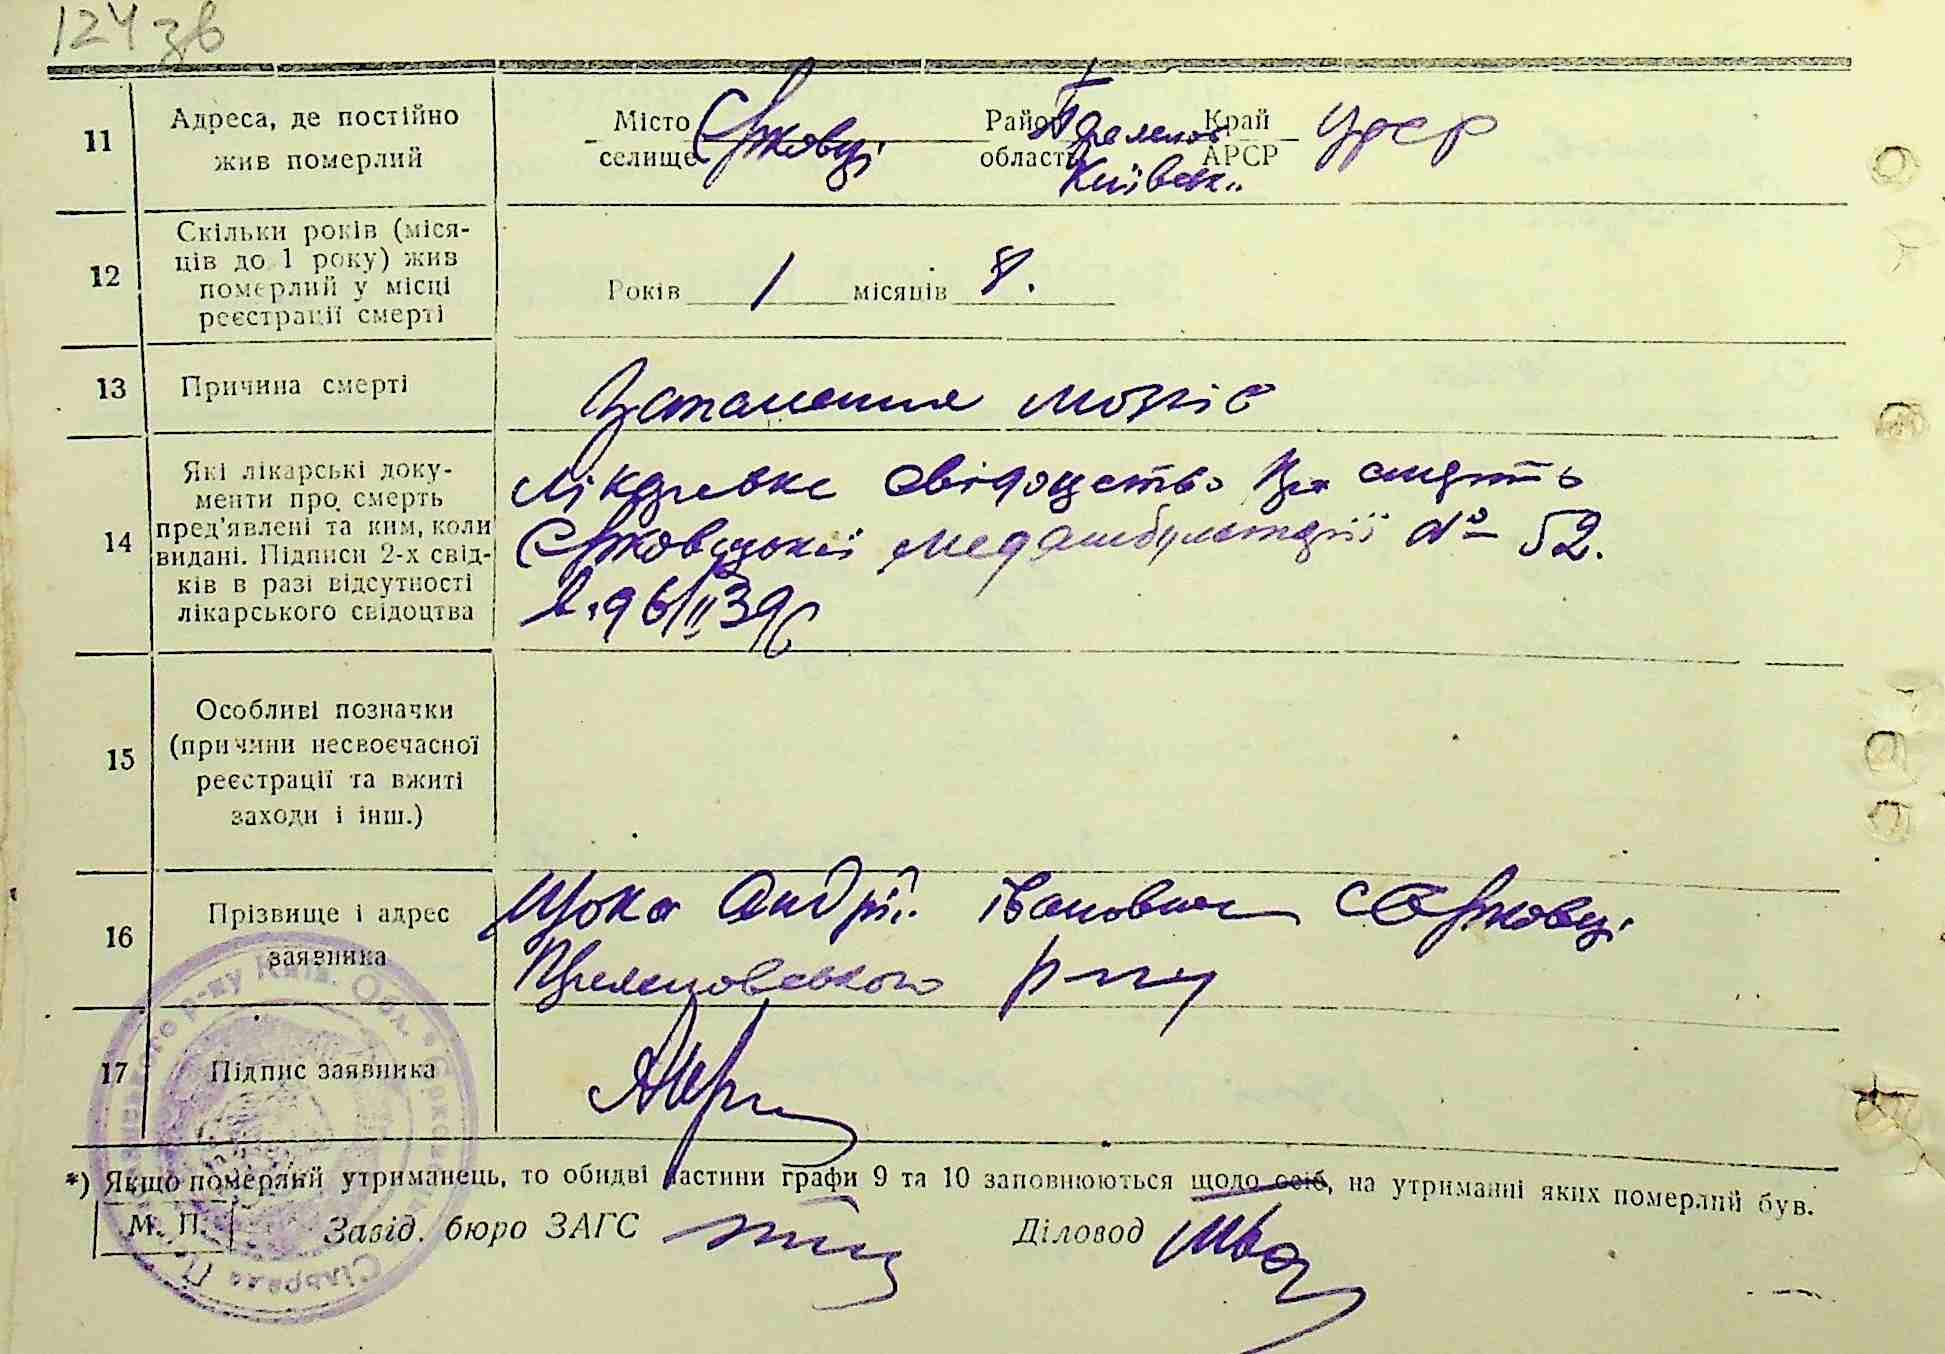 124 зв
11
Адреса, де постійно
жив померлий
Місто
селище Єрковці
Район
область
Київськ.
Край
АРСР
УРСР
12
Скільки років (міся-
ців до 1 року) жив
померлий у місці
реєстрації смерті
Років 1 місяців 8.
13
Причина смерті
Запалення мозків
14
Які лікарські доку-
менти про смерть
пред'явлені та ким, коли
видані. Підписи 2-х свід-
ків в разі відсутності
лікарського свідоцтва
Лікарське свідоцтво за смерть
Єрковецької медамбулаторії № 52.
15
Особливі позначки
(причини несвоєчасної
реєстрації та вжиті
заходи і інш.)
16
Прізвище і адрес
заявника
Андрій Іванович с Єрковці
р-ну
17
Підпис заявника
*) Якщо померлий утриманець, то обидві частини графи 9 та 10 заповнюються щодо осіб, на утриманні яких померлий був.
М. П.
Завід. бюро ЗАГС
Діловод
р-ну Київ. Обл.
Сільрада